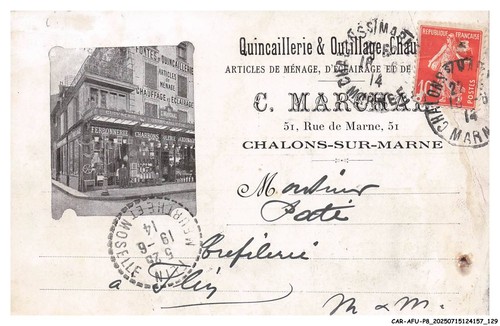 Quincaillerie & Outillage, Chau
ARTICLES DE MÉNAGE, D'ÉCLAIRAGE ET DE
C. MARCHAL
51, Rue de Marne, 51
CHALONS-SUR-MARNE
FONTES & QUINCAILLERIE
ARTICLES DE MENAGE
CHAUFFAGE & ECLAIRAGE
FERRONNERIE CHARBONS
REPUBLIQUE FRANÇAISE
POSTES
CHALONS S MARNE
14
MARNE
MEURTHE ET MOSELLE
5 25
19-6
14
Monsieur
Paté
Tréfilerie
à Flin
M & M.
CAR-AFU-P8_20250715124157_129